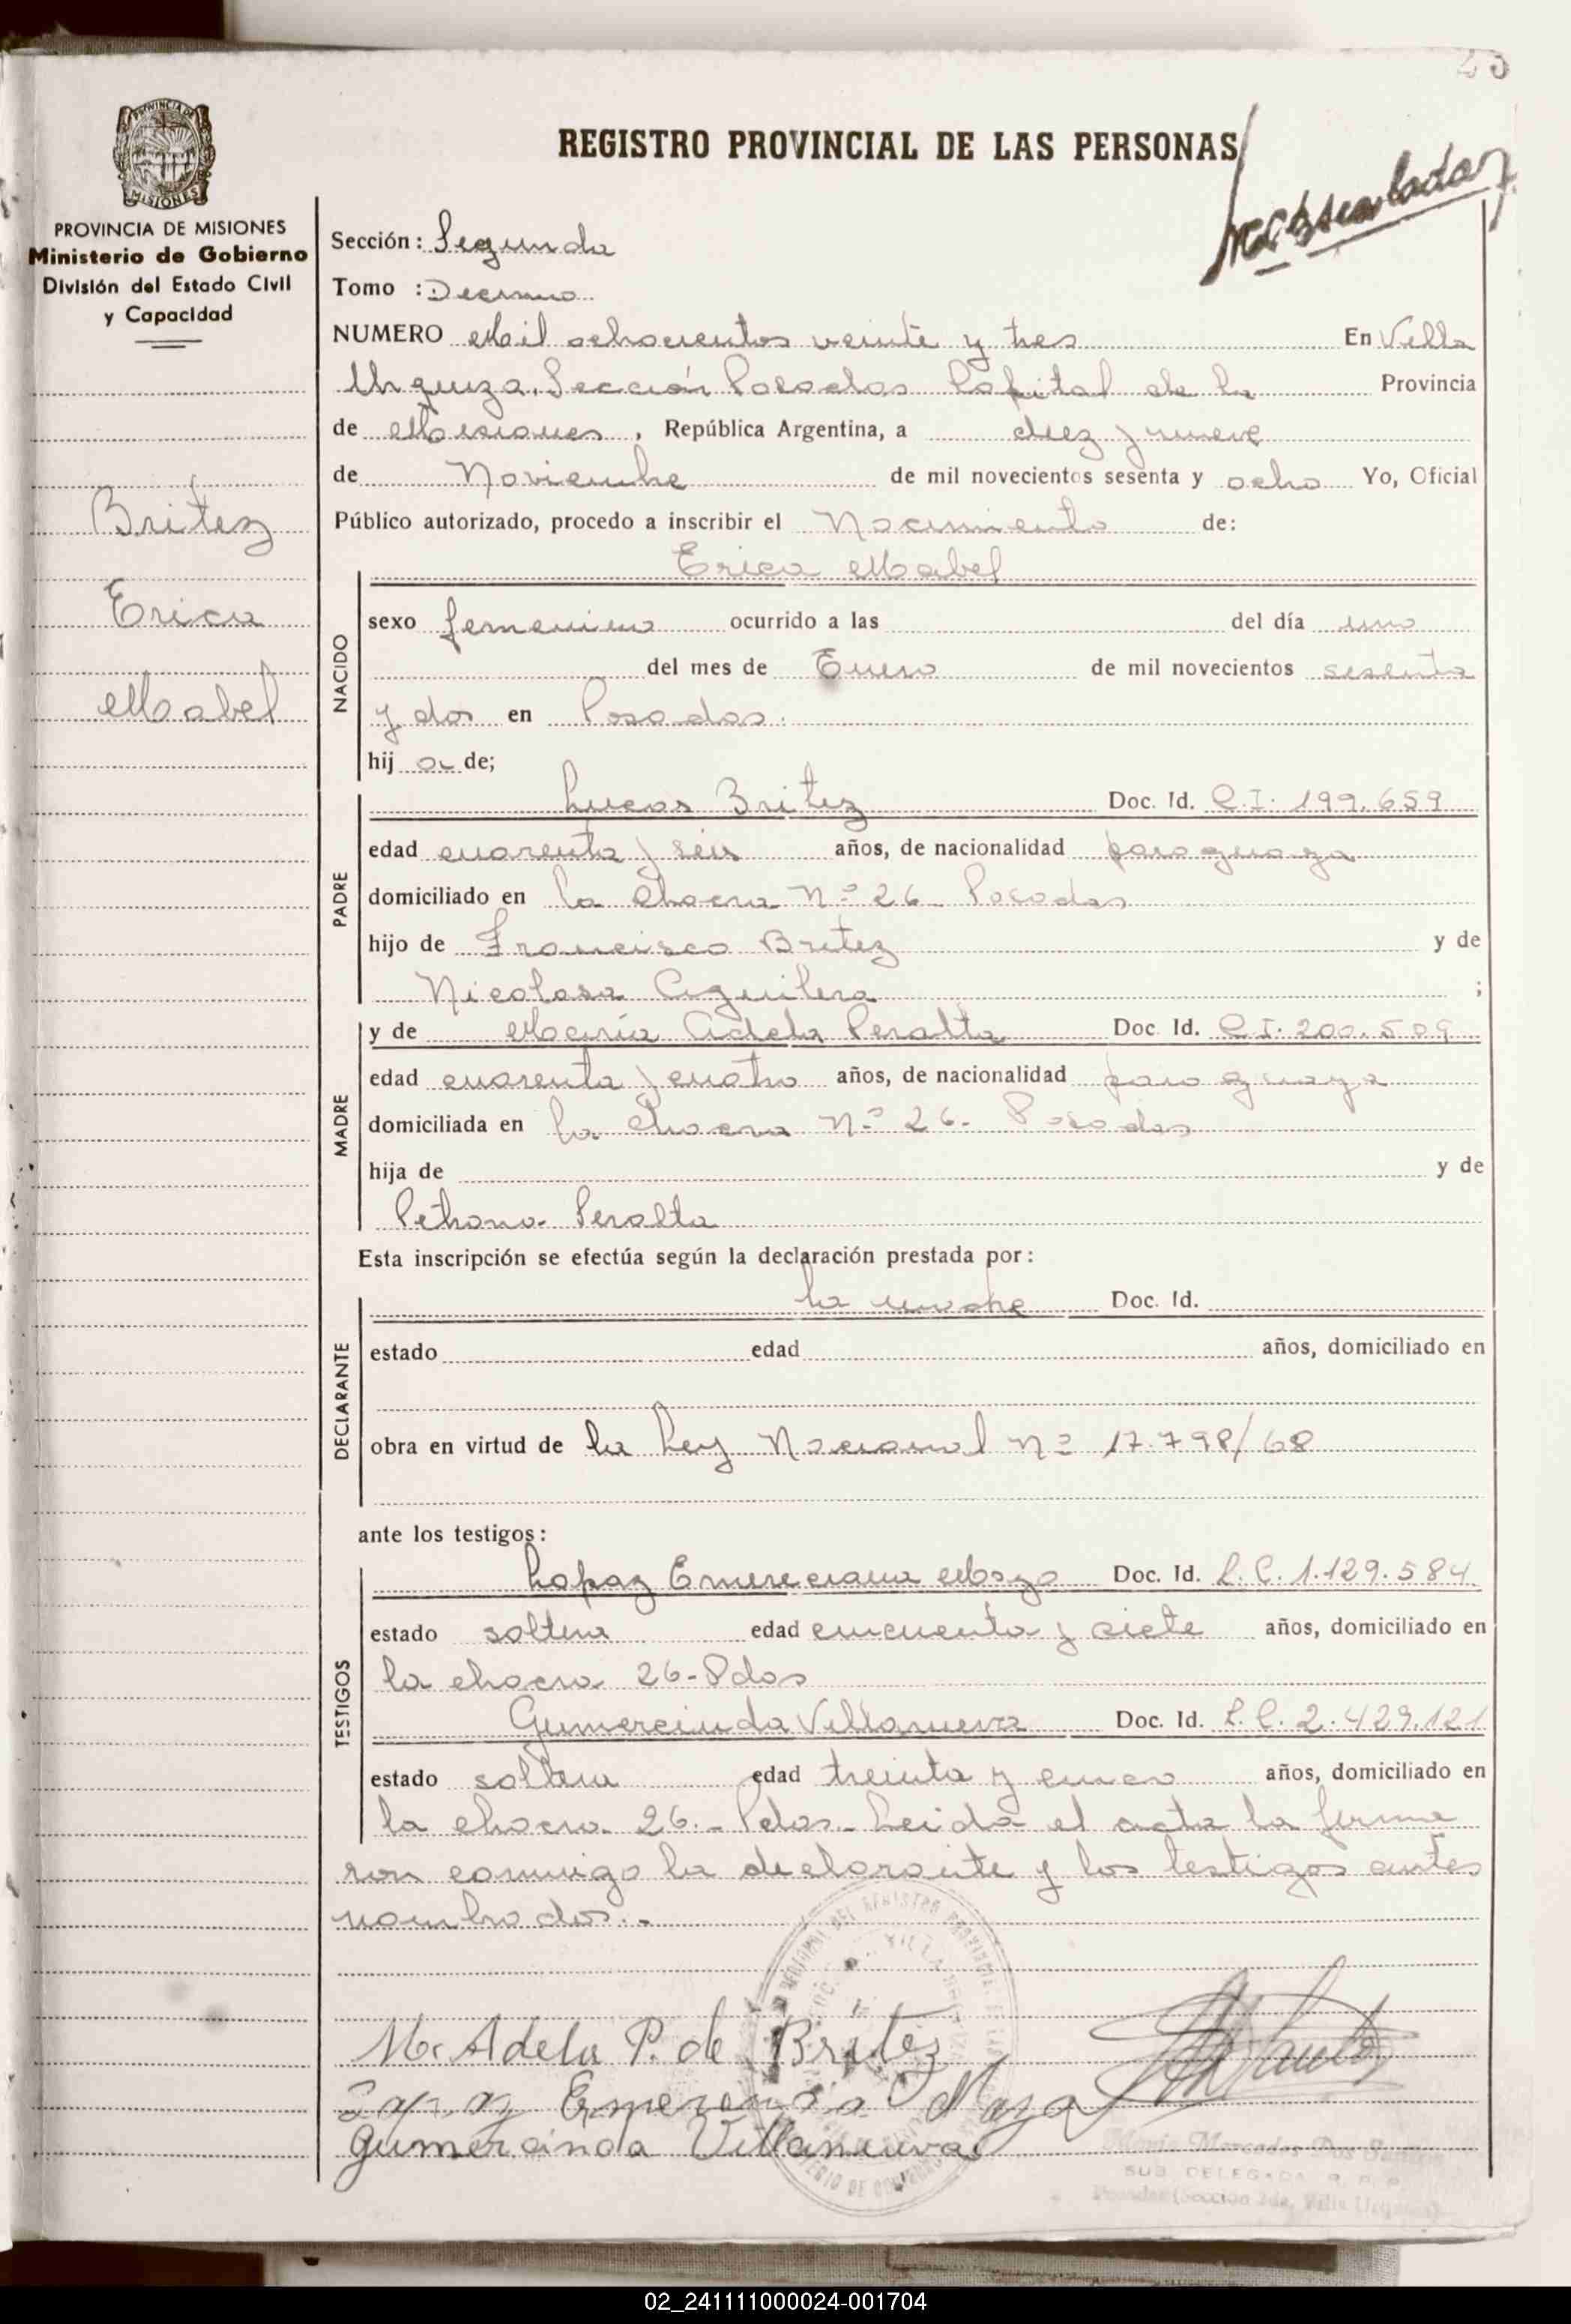 PROVINCIA DE MISIONES
PROVINCIA DE MISIONES
Ministerio de Gobierno
División del Estado Civil
y Capacidad
Britez
Erica
Mabel
REGISTRO PROVINCIAL DE LAS PERSONAS
Sección: Segunda
Tomo : Decimo
NUMERO Mil ochocientos veinte y tres En Villa
Urquiza. Sección Posadas Capital de la Provincia
de Misiones, República Argentina, a diez y nueve
de Noviembre de mil novecientos sesenta y ocho Yo, Oficial
Público autorizado, procedo a inscribir el Nacimiento de:
Erica Mabel
NACIDO
sexo femenino ocurrido a las del día uno
del mes de Enero de mil novecientos sesenta
y dos en Posadas.
hij a de;
PADRE
Lucas Britez Doc. Id. C.I. 199.659
edad cuarenta y seis años, de nacionalidad paraguaya
domiciliado en la chacra Nº 26 Posadas
hijo de Francisco Britez y de
Nicolasa Aguilera ;
MADRE
y de María Adela Peralta Doc. Id. C.I. 200.509
edad cuarenta y cuatro años, de nacionalidad paraguaya
domiciliada en la chacra Nº 26. Posadas
hija de y de
Petrona Peralta
Esta inscripción se efectúa según la declaración prestada por:
DECLARANTE
la madre Doc. Id.
estado edad años, domiciliado en
obra en virtud de la Ley Nacional Nº 17.798/68
ante los testigos:
TESTIGOS
Lopaz Emerenciana Mazo Doc. Id. L.C. 1.129.584
estado soltera edad cincuenta y siete años, domiciliado en
la chacra 26-Pdas
Gumercinda Villanueva Doc. Id. L.C. 2.429.121
estado soltera edad treinta y cinco años, domiciliado en
la chacra 26.- Pdas.- Leida el acta la firma
ron conmigo la declarante y los testigos antes
nombrados.-
M. Adela P. de Britez
Emerencia Maza
Gumercinda Villanueva
Maria Mercedes Dos Santos
SUB DELEGADA R. P. P.
Posadas (Sección 2da. Villa Urquiza)
02_241111000024-001704